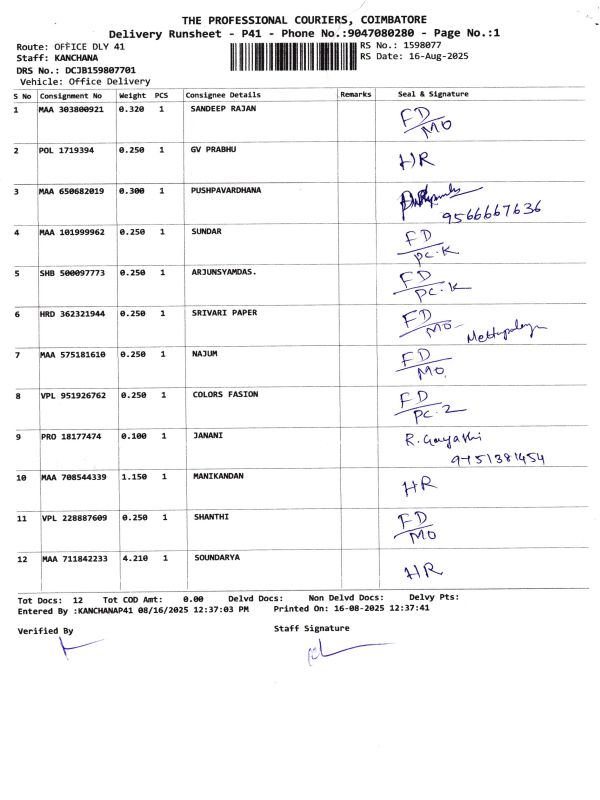 THE PROFESSIONAL COURIERS, COIMBATORE
Delivery Runsheet - P41 - Phone No.:9047080280 - Page No.:1
Route: OFFICE DLY 41
RS No.: 1598077
Staff: KANCHANA
RS Date: 16-Aug-2025
DRS No.: DCJB159807701
Vehicle: Office Delivery
S No Consignment No Weight PCS Consignee Details Remarks Seal & Signature
1 MAA 303800921 0.320 1 SANDEEP RAJAN FD/MO
2 POL 1719394 0.250 1 GV PRABHU HR
3 MAA 650682019 0.300 1 PUSHPAVARDHANA
9566667636
4 MAA 101999962 0.250 1 SUNDAR FD/PC.K
5 SHB 500097773 0.250 1 ARJUNSYAMDAS. FD/PC.K
6 HRD 362321944 0.250 1 SRIVARI PAPER FD/MO
7 MAA 575181610 0.250 1 NAJUM FD/MO.
8 VPL 951926762 0.250 1 COLORS FASION FD/PC.2
9 PRO 18177474 0.100 1 JANANI R. Gayathi
10 MAA 708544339 1.150 1 MANIKANDAN HR
11 VPL 228887609 0.250 1 SHANTHI FD/MO
12 MAA 711842233 4.210 1 SOUNDARYA HR
Tot Docs: 12 Tot COD Amt: 0.00 Delvd Docs: Non Delvd Docs: Delvy Pts:
Entered By :KANCHANAP41 08/16/2025 12:37:03 PM Printed On: 16-08-2025 12:37:41
Verified By Staff Signature